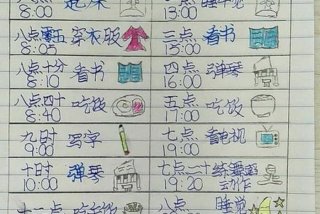 八点 起床
8:00
13:00
八点零五 穿衣服
8:05
三点 看书
15:00
八点十分 看书
8:10
四点 弹琴
16:00
八点四十 吃饭
8:40
五点 吃饭
17:00
九时 写字
9:00
七点 看电视
19:00
十时 弹琴
10:00
七点二十 练
19:20 动作
八点 睡觉